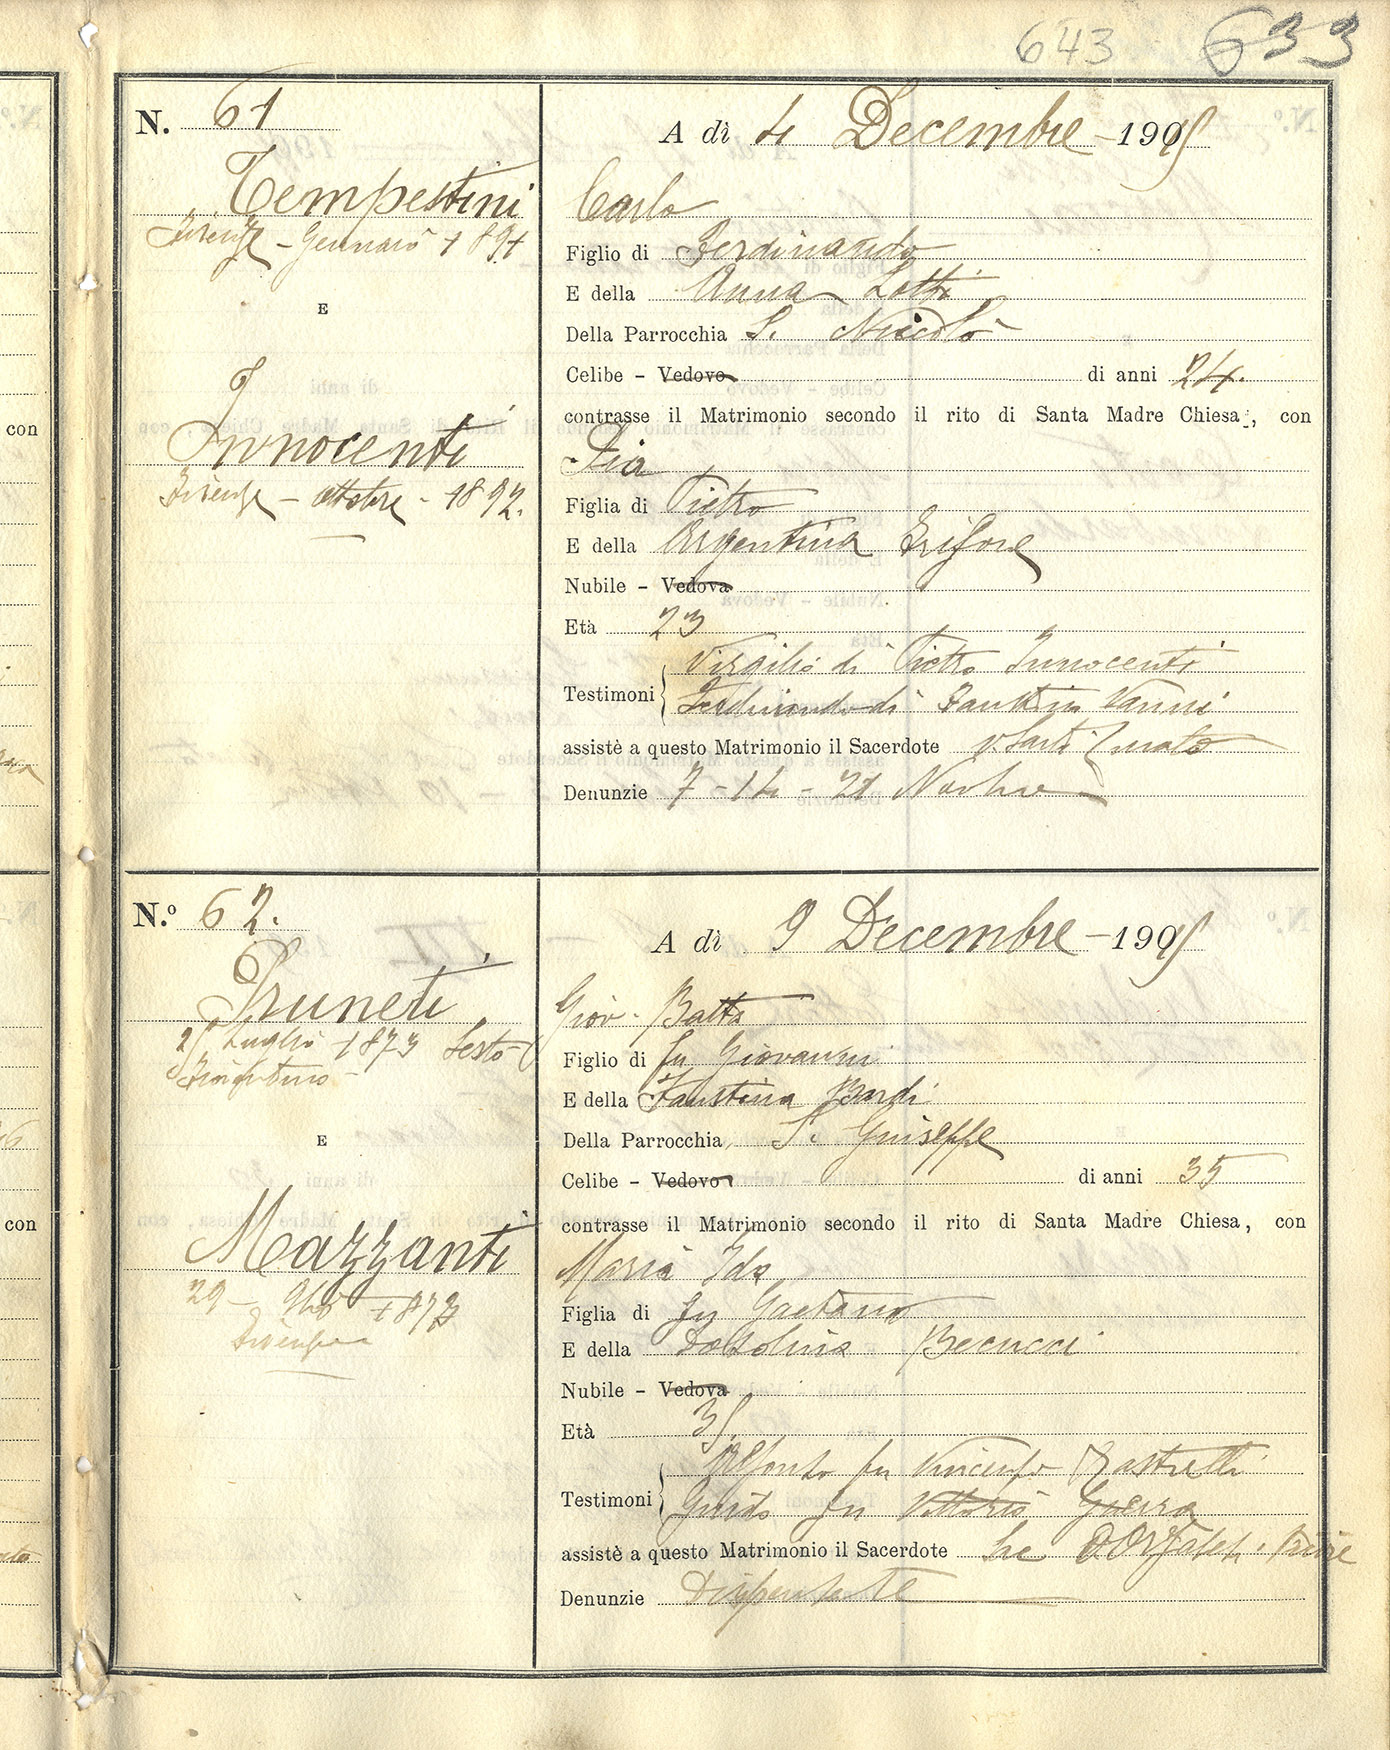 643 633
N. 61
A dì 4 Decembre - 1915
Tempestini
Carlo
Firenze - Gennaro 1891
Figlio di Ferdinando
E della Anna Lotti
E
Della Parrocchia S. Niccolò
Celibe - Vedovo di anni 24.
contrasse il Matrimonio secondo il rito di Santa Madre Chiesa, con
Innocenti
Pia
Firenze - ottobre - 1892.
Figlia di Pietro
E della Argentina
Nubile - Vedova
Età 23
Virgilio di Pietro Innocenti
Testimoni
Ferdinando di Vanni
assistè a questo Matrimonio il Sacerdote
Denunzie 7 - 14 - 21 Novbre
con
N.º 62.
A dì 9 Decembre - 1915
Pruneti
Giov. Batta
25 Luglio 1873 Sesto
Fiorentino -
Figlio di fu Giovanni
E della Faustina Bardi
E
Della Parrocchia S. Giuseppe
Celibe - Vedovo di anni 35
contrasse il Matrimonio secondo il rito di Santa Madre Chiesa, con
Mazzanti
Maria Ida
29 - 9bre 1873
Firenze
Figlia di fu Gaetano
E della Becucci
Nubile - Vedova
Età 35.
Alfonso fu Vincenzo Rastrelli
Testimoni
Guido fu Vittorio Guerra
assistè a questo Matrimonio il Sacerdote
Denunzie Dispensate
con